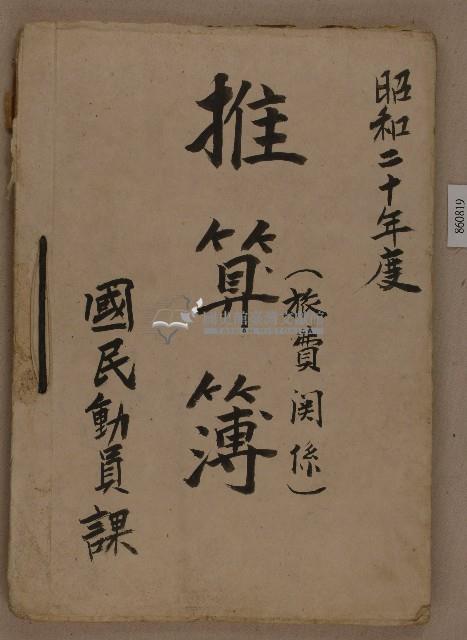 昭和二十年度
推算簿
(旅費関係)
國民動員課
860819